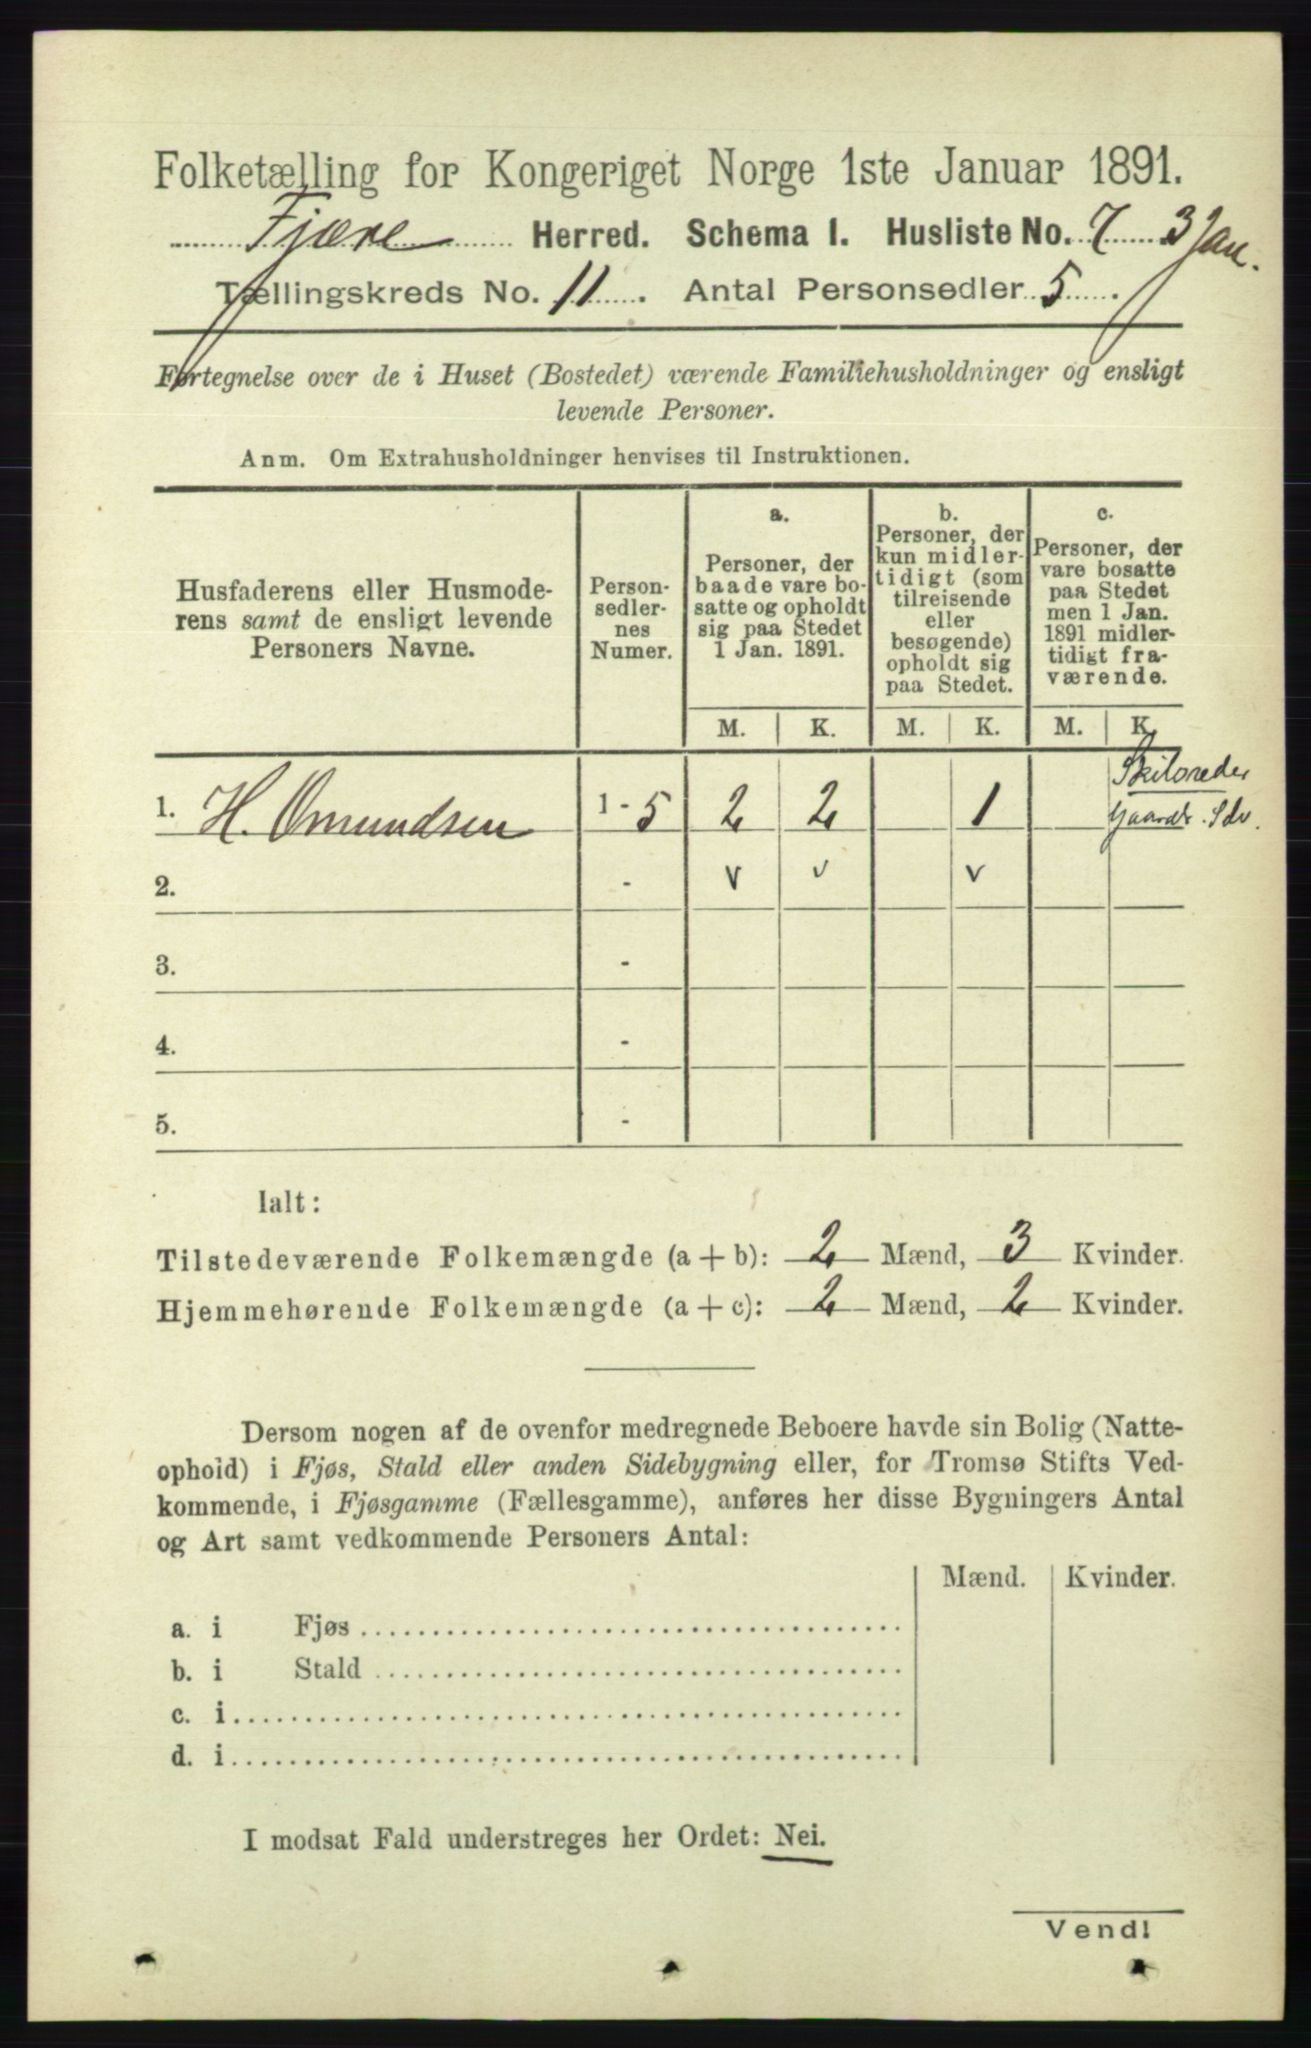 Folketælling for Kongeriget Norge 1ste Januar 1891.
Fjære Herred. Schema I. Husliste No. 7 3 Jan.
Tællingskreds No. 11. Antal Personsedler 5.
Fortegnelse over de i Huset (Bostedet) værende Familiehusholdninger og ensligt
levende Personer.
Anm. Om Extrahusholdninger henvises til Instruktionen.
Husfaderens eller Husmode-
rens samt de ensligt levende
Personers Navne.
Person-
sedler-
nes
Numer.
a.
Personer, der
baade vare bo-
satte og opholdt
sig paa Stedet
1 Jan. 1891.
b.
Personer, der
kun midler-
tidigt (som
tilreisende
eller
besøgende)
opholdt sig
paa Stedet.
c.
Personer, der
vare bosatte
paa Stedet
men 1 Jan.
1891 midler-
tidigt fra-
værende.
M. K. M. K. M. K.
Skibsreder
1. H. Omundsen 1 - 5 2 2 1 Gaardbr. Selv.
2. - v v v
3. -
4. -
5. -
Ialt:
Tilstedeværende Folkemængde (a + b): 2 Mænd, 3 Kvinder.
Hjemmehørende Folkemængde (a + c): 2 Mænd, 2 Kvinder.
Dersom nogen af de ovenfor medregnede Beboere havde sin Bolig (Natte-
ophold) i Fjøs, Stald eller anden Sidebygning eller, for Tromsø Stifts Ved-
kommende, i Fjøsgamme (Fællesgamme), anføres her disse Bygningers Antal
og Art samt vedkommende Personers Antal:
Mænd. Kvinder.
a. i Fjøs
b. i Stald
c. i
d. i
I modsat Fald understreges her Ordet: Nei.
Vend!